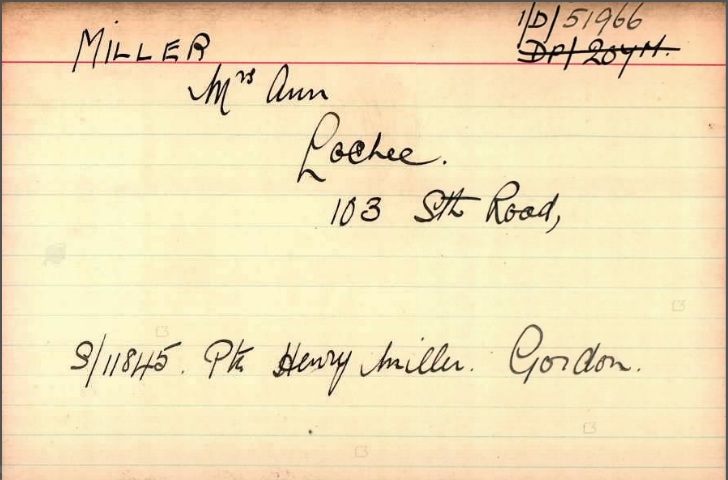 1/D/51966
MILLER
DP/204M.
Mrs Ann
Lochee.
103 Sth Road,
S/11845. Pte Henry Miller. Gordon.